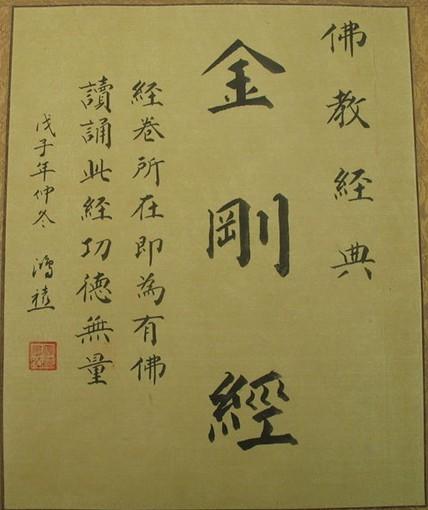 佛教經典
金剛經
經卷所在即為有佛
讀誦此經功德無量
戊子年仲冬